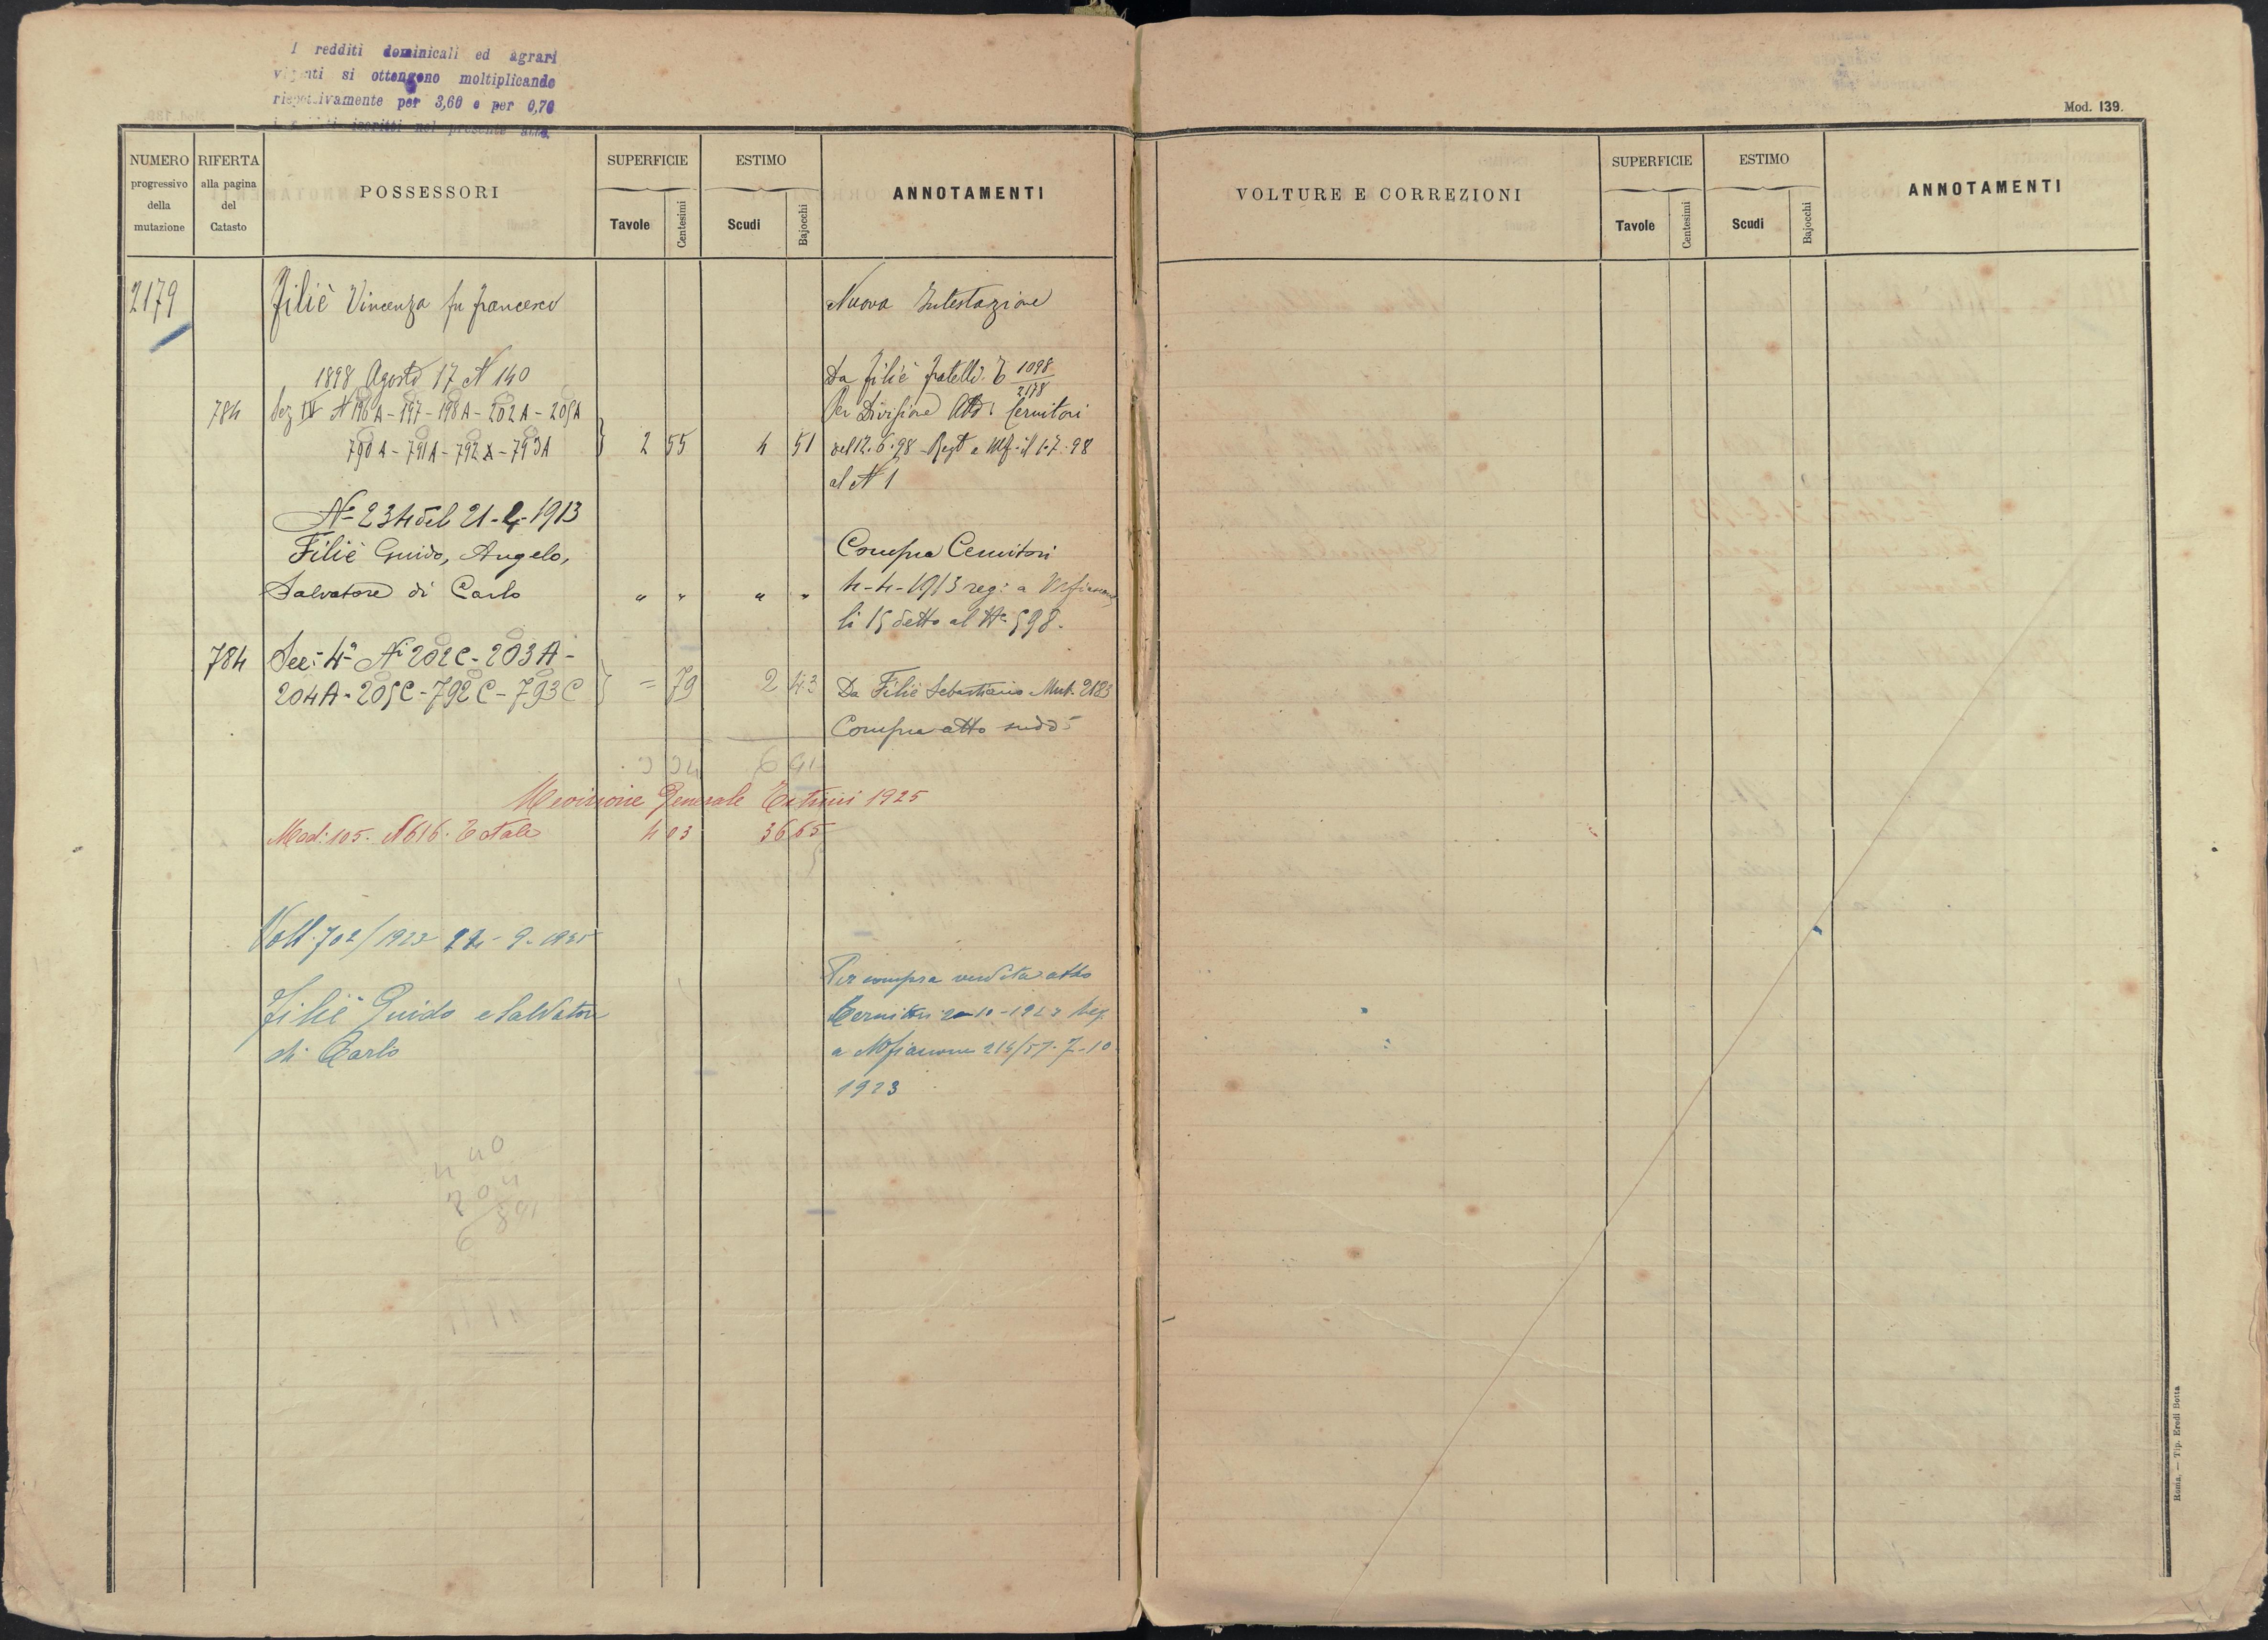 I redditi dominicali ed agrari
vigenti si ottengono moltiplicando
rispettivamente per 3,60 e per 0,70
i redditi iscritti nel presente atto.
Mod. 139.
NUMERO progressivo della mutazione
RIFERTA alla pagina del Catasto
POSSESSORI
SUPERFICIE
Tavole
Centesimi
ESTIMO
Scudi
Bajocchi
ANNOTAMENTI
VOLTURE E CORREZIONI
SUPERFICIE
Tavole
Centesimi
ESTIMO
Scudi
Bajocchi
ANNOTAMENTI
2179 Filiè Vincenza fu Francesco Nuova Intestazione
1898 Agosto 17 N 140 Da Filiè fratelli 1098
2178
784 Sez IV N 196A - 197 - 198A - 202A - 205A Per Divisione Atto Cernitori
790A - 791A - 792A - 793A } 2 55 4 51 del 12.6.98 Regto a Mf. il 1.7.98
al N 1
No 234 del 21-4-1913
Filiè Guido, Angelo, Compra Cernitori
Salvatore di Carlo " " " " 4-4-1913 reg: a
li 15 detto al No 598.
784 Sez: 4a Ni 202C - 203A -
204A - 205C - 792C - 793C } = 79 2 43 Da Filiè Sebastiano Mut. 2183
Compra atto sudd
3 34 6 94
Revisione Generale Estimi 1925
Mod: 105. N 616. Totale 4 03 36 65
Volt. 702/1923 24-9-1925
Per compra vendita atto
Filiè Guido e Salvatore Cernitori 2-10-1923 Reg
di Carlo a Mfiascone 214/57. 7-10
1923
4 40
2 04
6 84
Roma, — Tip. Eredi Botta